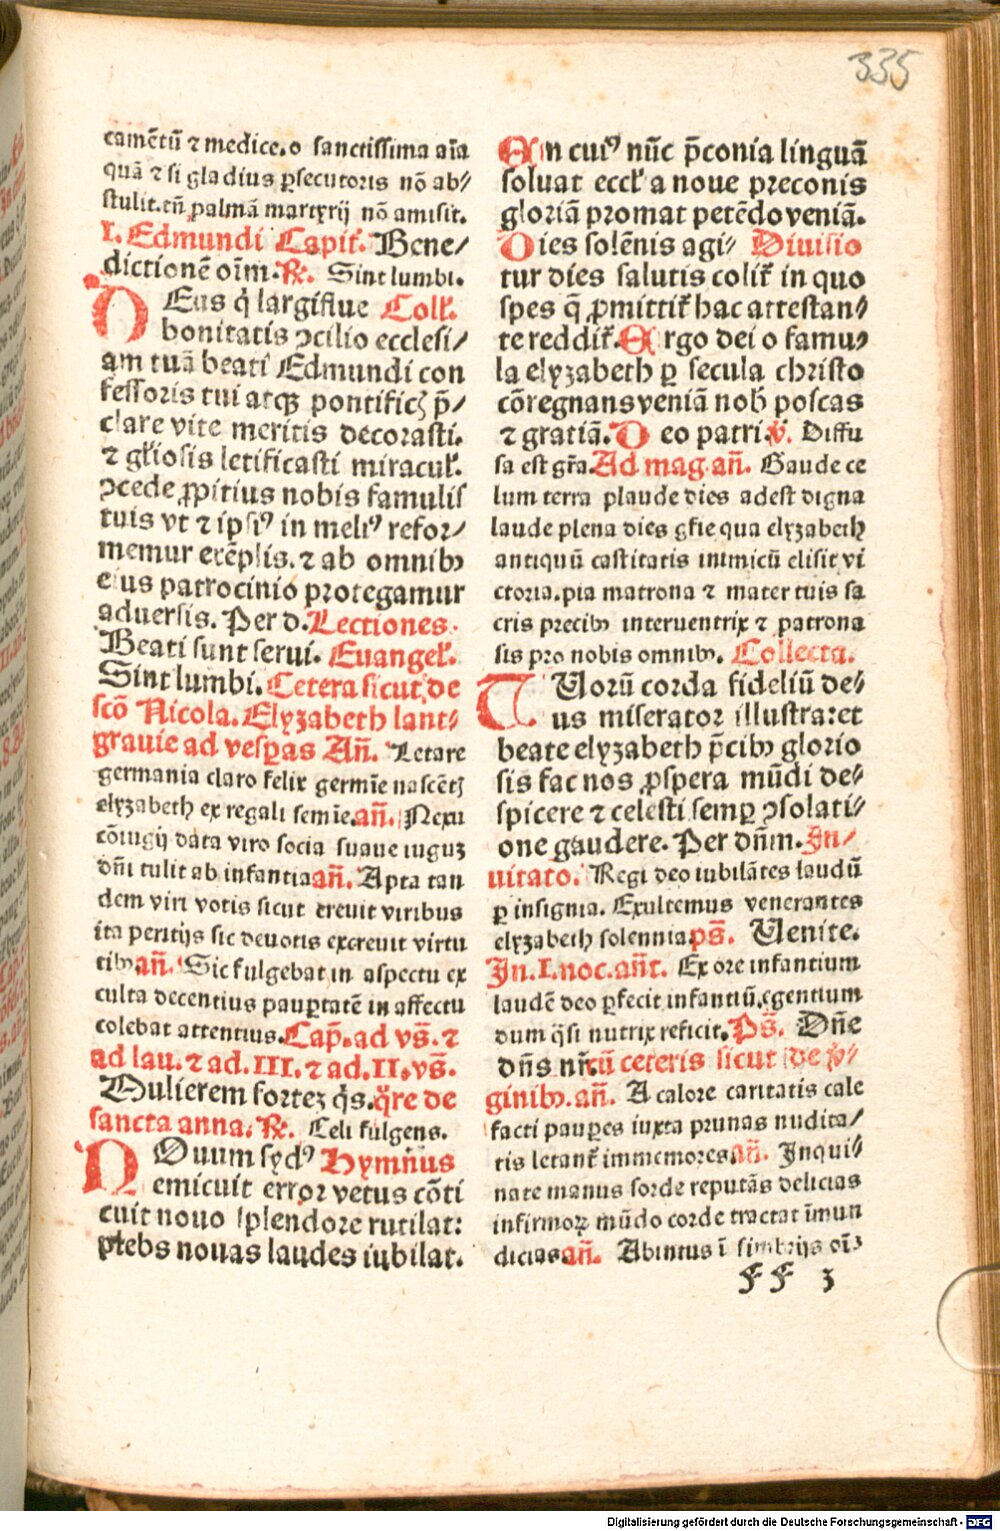 335
camētū ⁊ medice.o sanctissima aīa
quā ⁊ si gladius ꝑsecutoris nō ab⸗
stulit.tñ palmā martyrij nō amisit.
I. Edmundi Capit̄. Bene⸗
dictionē oīm. ℟. Sint lumbi.
DEus q̇ largiflue Coll̄.
bonitatis ↄcilio ecclesi⸗
am tuā beati Edmundi con
fessoris tui atqꝫ pontificꝭ p̄⸗
clare vite meritis decorasti.
⁊ gl̄iosis letificasti miracul̄.
ↄcede ꝓpitius nobis famulis
tuis vt ⁊ ipsiꝰ in meliꝰ refor⸗
memur exēplis. ⁊ ab omnibꝫ
eius patrocinio protegamur
aduersis. Per d. Lectiones.
Beati sunt serui. Euangel̄.
Sint lumbi. Cetera sicut de
scō Nicola. Elyzabeth lant⸗
grauie ad vesꝑas Añ. Letare
germania claro felix germīe nascētꝭ
elyzabeth ex regali semīe.añ. Nexu
cōiugij data viro socia suaue iuguꝫ
dñi tulit ab infantia añ. Apta tan
dem viri votis sicut creuit viribus
ita peritijs sic deuotis excreuit virtu
tibꝫ añ. Sic fulgebat in aspectu ex
culta decentius pauꝑtatē in affectu
colebat attentius. Cap̄. ad vs̄. ⁊
ad lau. ⁊ ad. III. ⁊ ad. II. vs̄.
Mulierem forteꝫ q̇s. q̄re de
sancta anna. ℟. Celi fulgens.
NOuum sydꝰ Hymnus
emicuit error vetus cōti
cuit nouo splendore rutilat:
plebs nouas laudes iubilat.
En cuiꝰ nūc p̄conia linguā
soluat eccl̄a noue preconis
gloriā promat petēdo veniā.
Dies solēnis agi⸗ Diuisio
tur dies salutis colit̄ in quo
spes q̄ ꝓmittit̄ hac attestan⸗
te reddit̄. Ergo dei o famu⸗
la elyzabeth ꝑ secula christo
cōregnans veniā nob̄ poscas
⁊ gratiā. Deo patri. ℣. Diffu
sa est gr̄a. Ad mag añ. Gaude ce
lum terra plaude dies adest digna
laude plena dies gl̄ie qua elyzabeth
antiquū castitatis inimicū elisit vi
ctoria.pia matrona ⁊ mater tuis sa
cris precibꝫ interuentrix ⁊ patrona
sis pro nobis omnibꝫ. Collecta.
TUorū corda fideliū de⸗
us miserator illustra:et
beate elyzabeth p̄cibꝫ glorio
sis fac nos ꝓspera mūdi de⸗
spicere ⁊ celesti semꝑ ↄsolati⸗
one gaudere. Per dñm. In⸗
uitato. Regi deo iubilātes laudū
ꝑ insignia. Exultemus venerantes
elyzabeth solennia ps̄. Uenite.
In. I. noc. añt. Ex ore infantium
laudē deo ꝑfecit infantiū, egentium
dum q̇si nutrix reficit. Ps̄. Dñe
dñs nr̄ ū ceteris sicut de v̄⸗
ginibꝫ. añ. A calore caritatis cale
facti pauꝑes iuxta prunas nudita⸗
tis letant̄ immemores añ. Inqui⸗
nate manus sorde reputās delicias
infirmoꝝ mūdo corde tractat īmun
dicias añ. Abintus ī fimbrijs oīꝫ
FF 3
Digitalisierung gefördert durch die Deutsche Forschungsgemeinschaft - DFG